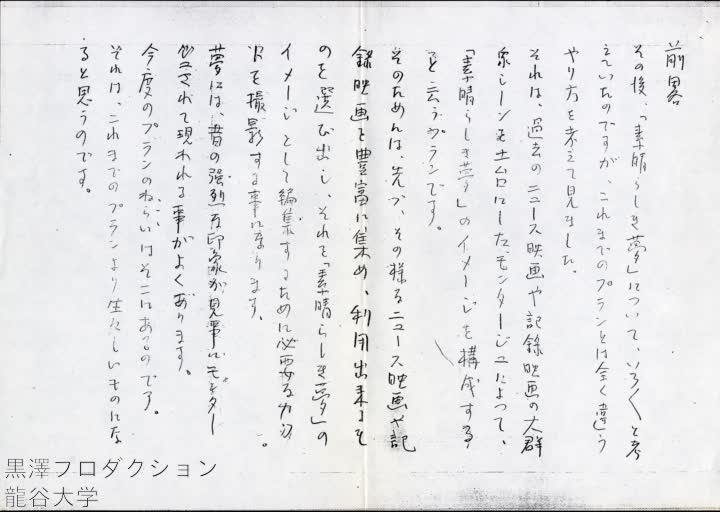 前畧
その後、「素晴らしき夢」について、いろ〱と考
えていたのですが、これまでのプランとは全く違う
やり方を考えて見ました。
それは、過去のニュース映画や記録映画の大群
衆シーンを土台にしたモンタージュによって、
「素晴らしき夢」のイメージを構成する
と云うプランです。
そのためには、先づ、その様なニュース映画や記
録映画を豊富に集め、利用出来るも
のを選び出し、それを「素晴らしき夢」の
イメージとして編集するために必要なカット
を撮影する事になります。
夢には、昔の強烈な印象が見事にモンター
ジュされて現われる事がよくあります。
今度のプランのねらいはそこにあるのです。
それは、これまでのプランより生々しいものにな
ると思うのです。
黒澤プロダクション
龍谷大学